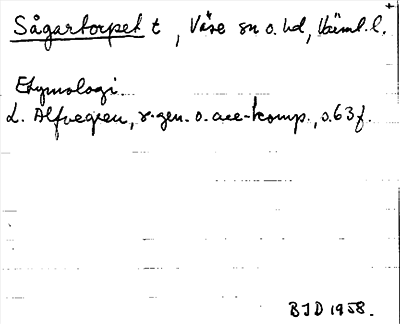 Sågartorpet t, Väse sn o. hd, Värml. l.
Etymologi.
L. Alfvegren, r-gen. o. ace-komp., s. 63 f.
BJD 1958.